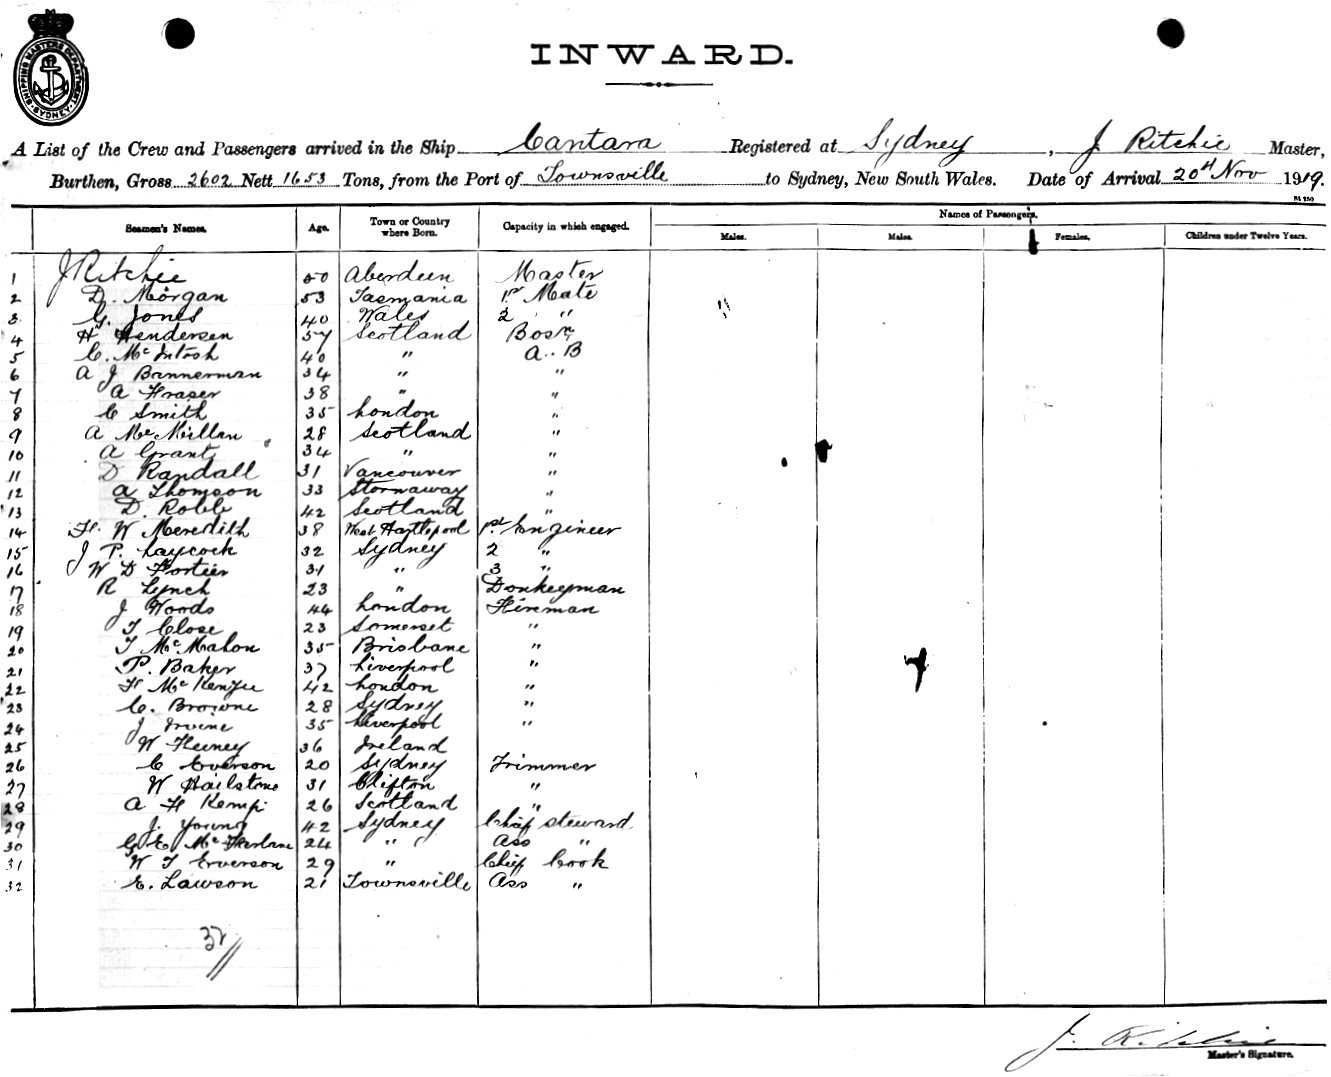 SHIPPING MASTERS DEPARTMENT SYDNEY
INWARD.
A List of the Crew and Passengers arrived in the Ship Cantara Registered at Sydney, J Ritchie Master,
Burthen, Gross 2602 Nett 1653 Tons, from the Port of Townsville to Sydney, New South Wales. Date of Arrival 20th Nov 1919.
Seamen's Names. Age. Town or Country where Born. Capacity in which engaged. Names of Passengers.
Males. Males. Females. Children under Twelve Years.
1 J Ritchie 50 Aberdeen Master
2 D. Morgan 53 Tasmania 1st Mate
3 G. Jones 40 Wales 2 "
4 H Hendersen 57 Scotland Bosn
5 C. McIntosh 40 " A. B
6 A J Bannerman 34 " "
7 A Fraser 38 " "
8 C Smith 35 London "
9 A McMillan 28 Scotland "
10 A Grant 34 " "
11 D Randall 31 Vancouver "
12 A Thomson 33 Stornaway "
13 D. Robb 42 Scotland "
14 H. W Meredith 38 West Hartlepool 1st Engineer
15 J P. Laycock 32 Sydney 2 "
16 W D Fortier 31 " 3 "
17 R Lynch 23 " Donkeyman
18 J Woods 44 London Fireman
19 T Close 23 Somerset "
20 T McMahon 35 Brisbane "
21 P. Baker 37 Liverpool "
22 H McKenzie 42 London "
23 C. Browne 28 Sydney "
24 J Irvine 35 Liverpool "
25 W Feeney 36 Ireland
26 C Everson 20 Sydney Trimmer
27 W Hailstone 31 Clifton "
28 A H Kemp 26 Scotland "
29 J. Young 42 Sydney Chief steward
30 G E McFarlane 24 " Ass "
31 W T Everson 29 " Chief Cook
32 E. Lawson 21 Townsville Ass "
32
J. Ritchie
Master's Signature.